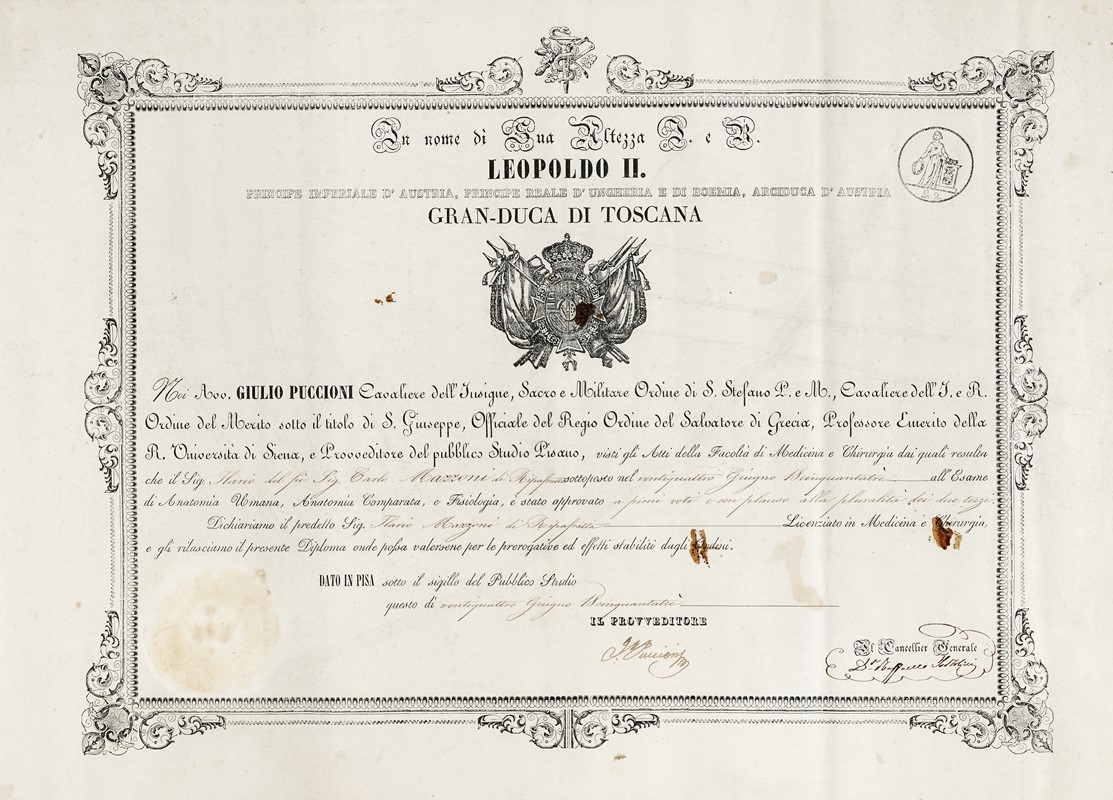 In nome di Sua Altezza I. e R.
LEOPOLDO II.
PRINCIPE IMPERIALE D'AUSTRIA, PRINCIPE REALE D'UNGHERIA E DI BOEMIA, ARCIDUCA D'AUSTRIA
GRAN-DUCA DI TOSCANA
Noi Avv. GIULIO PUCCIONI Cavaliere dell'Insigne, Sacro e Militare Ordine di S. Stefano P. e M., Cavaliere dell'I. e R.
Ordine del Merito sotto il titolo di S. Giuseppe, Officiale del Regio Ordine del Salvatore di Grecia, Professore Emerito della
R. Università di Siena, e Provveditore del pubblico Studio Pisano, visti gli Atti della Facoltà di Medicina e Chirurgia dai quali resulta
che il Sig. Ilario del fù Sig. Carlo Mazzoni di sottoposto nel ventiquattro Giugno 8cinquantatrè all'Esame
di Anatomia Umana, Anatomia Comparata, e Fisiologia, è stato approvato a pieni voti e con plauso alla pluralità dei due terzi
Dichiariamo il predetto Sig. Ilario Mazzoni di Licenziato in Medicina e Chirurgia,
e gli rilasciamo il presente Diploma onde possa valersene per le prerogative ed effetti stabiliti dagli Ordini.
DATO IN PISA sotto il sigillo del Pubblico Studio
questo dì ventiquattro Giugno 8cinquantatrè
IL PROVVEDITORE
Puccioni
Il Cancellier Generale
Dr. Raffaello